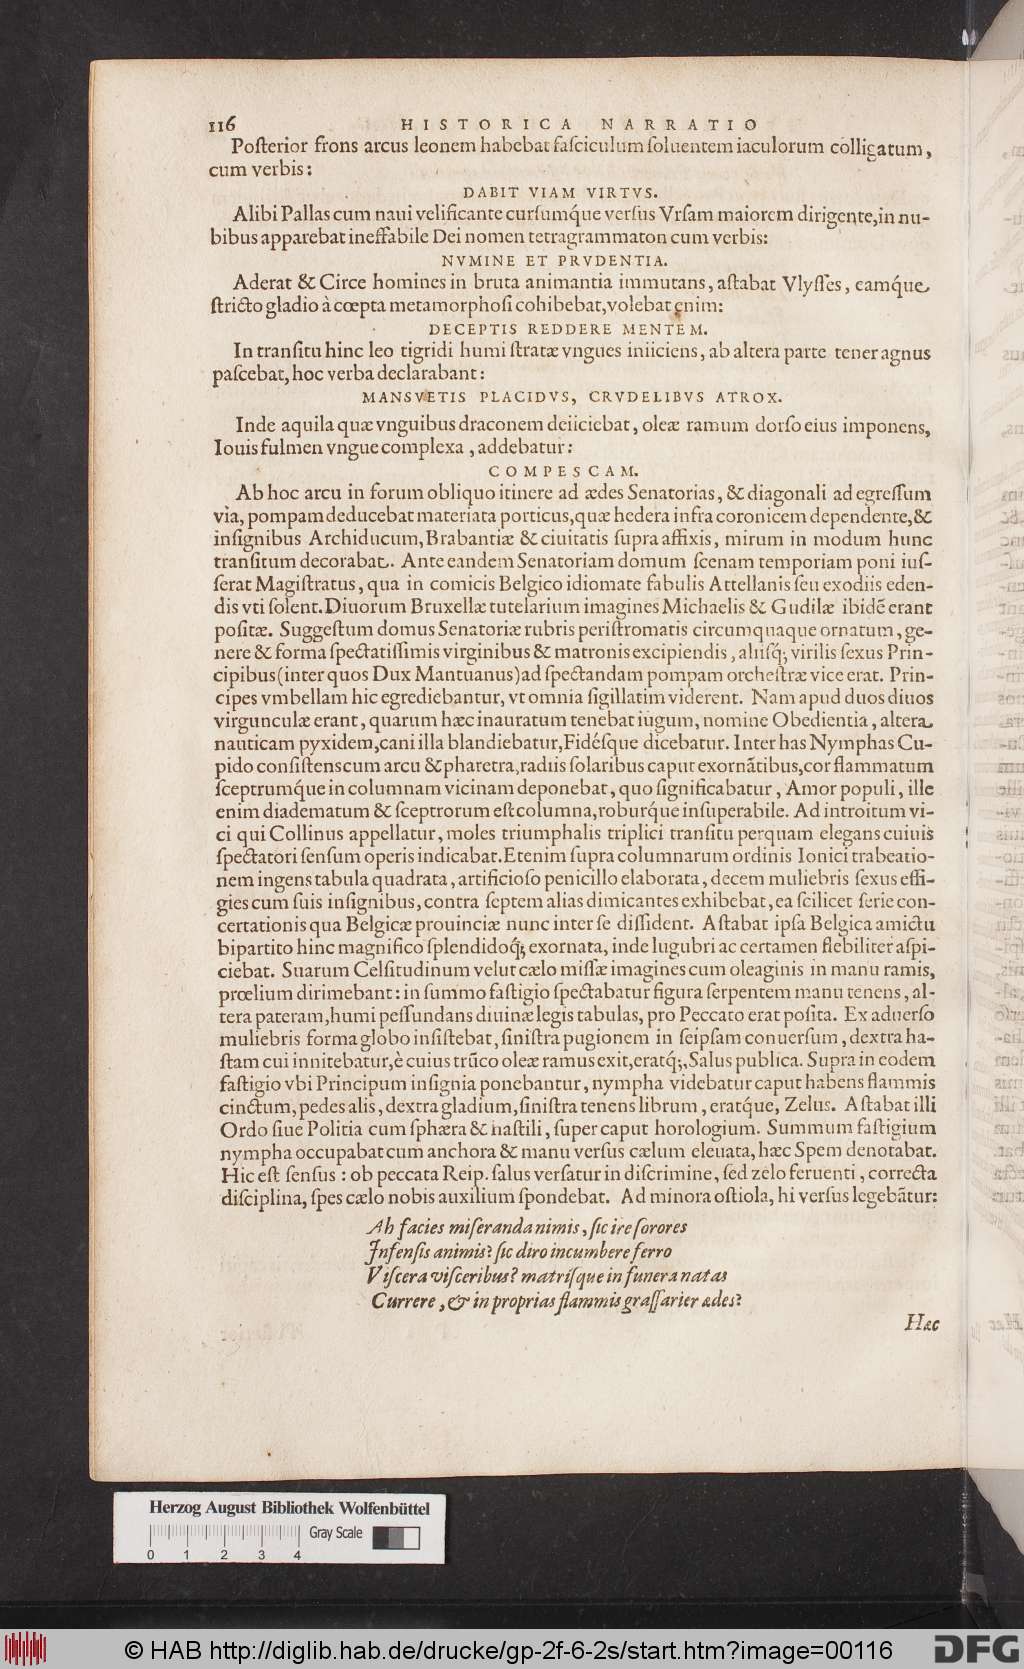 116 HISTORICA NARRATIO
Poſterior frons arcus leonem habebat faſciculum ſoluentem iaculorum colligatum,
cum verbis:
DABIT VIAM VIRTVS.
Alibi Pallas cum naui velificante curſumq́ue verſus Vrſam maiorem dirigente, in nu-
bibus apparebat ineffabile Dei nomen tetragrammaton cum verbis:
NVMINE ET PRVDENTIA.
Aderat & Circe homines in bruta animantia immutans, aſtabat Vlyſſes, eamq́ue
ſtricto gladio à cœpta metamorphoſi cohibebat, volebat enim:
DECEPTIS REDDERE MENTEM.
In tranſitu hinc leo tigridi humi ſtratæ vngues iniiciens, ab altera parte tener agnus
paſcebat, hoc verba declarabant:
MANSVETIS PLACIDVS, CRVDELIBVS ATROX.
Inde aquila quæ vnguibus draconem deiiciebat, oleæ ramum dorſo eius imponens,
Iouis fulmen vngue complexa, addebatur:
COMPESCAM.
Ab hoc arcu in forum obliquo itinere ad ædes Senatorias, & diagonali ad egreſſum
via, pompam deducebat materiata porticus, quæ hedera infra coronicem dependente, &
inſignibus Archiducum, Brabantiæ & ciuitatis ſupra affixis, mirum in modum hunc
tranſitum decorabat. Ante eandem Senatoriam domum ſcenam temporiam poni iuſ-
ſerat Magiſtratus, qua in comicis Belgico idiomate fabulis Attellanis ſeu exodiis eden-
dis vti ſolent. Diuorum Bruxellæ tutelarium imagines Michaelis & Gudilæ ibidẽ erant
poſitæ. Suggeſtum domus Senatoriæ rubris periſtromatis circumquaque ornatum, ge-
nere & forma ſpectatiſſimis virginibus & matronis excipiendis, aliiſq́; virilis ſexus Prin-
cipibus (inter quos Dux Mantuanus) ad ſpectandam pompam orcheſtræ vice erat. Prin-
cipes vmbellam hic egrediebantur, vt omnia ſigillatim viderent. Nam apud duos diuos
virgunculæ erant, quarum hæc inauratum tenebat iugum, nomine Obedientia, altera
nauticam pyxidem, cani illa blandiebatur, Fidéſque dicebatur. Inter has Nymphas Cu-
pido conſiſtens cum arcu & pharetra, radiis ſolaribus caput exornãtibus, cor flammatum
ſceptrumq́ue in columnam vicinam deponebat, quo ſignificabatur, Amor populi, ille
enim diadematum & ſceptrorum eſt columna, roburq́ue inſuperabile. Ad introitum vi-
ci qui Collinus appellatur, moles triumphalis triplici tranſitu perquam elegans cuiuis
ſpectatori ſenſum operis indicabat. Etenim ſupra columnarum ordinis Ionici trabeatio-
nem ingens tabula quadrata, artificioſo penicillo elaborata, decem muliebris ſexus effi-
gies cum ſuis inſignibus, contra ſeptem alias dimicantes exhibebat, ea ſcilicet ſerie con-
certationis qua Belgicæ prouinciæ nunc inter ſe diſſident. Aſtabat ipſa Belgica amictu
bipartito hinc magnifico ſplendidoq́; exornata, inde lugubri ac certamen flebiliter aſpi-
ciebat. Suarum Celſitudinum velut cælo miſſæ imagines cum oleaginis in manu ramis,
prœlium dirimebant: in ſummo faſtigio ſpectabatur figura ſerpentem manu tenens, al-
tera pateram, humi peſſundans diuinæ legis tabulas, pro Peccato erat poſita. Ex aduerſo
muliebris forma globo inſiſtebat, ſiniſtra pugionem in ſeipſam conuerſum, dextra ha-
ſtam cui innitebatur, è cuius trũco oleæ ramus exit, eratq́;, Salus publica. Supra in eodem
faſtigio vbi Principum inſignia ponebantur, nympha videbatur caput habens flammis
cinctum, pedes alis, dextra gladium, ſiniſtra tenens librum, eratq́ue, Zelus. Aſtabat illi
Ordo ſiue Politia cum ſphæra & haſtili, ſuper caput horologium. Summum faſtigium
nympha occupabat cum anchora & manu verſus cælum eleuata, hæc Spem denotabat.
Hic eſt ſenſus: ob peccata Reip. ſalus verſatur in diſcrimine, ſed zelo feruenti, correcta
diſciplina, ſpes cælo nobis auxilium ſpondebat. Ad minora oſtiola, hi verſus legebãtur:
Ah facies miſeranda nimis, ſic ire ſorores
Infenſis animis? ſic diro incumbere ferro
Viſcera viſceribus? matriſque in funera natas
Currere, & in proprias flammis graſſarier ædes?
Hæc
Herzog August Bibliothek Wolfenbüttel
Gray Scale
0 1 2 3 4
© HAB http://diglib.hab.de/drucke/gp-2f-6-2s/start.htm?image=00116
DFG